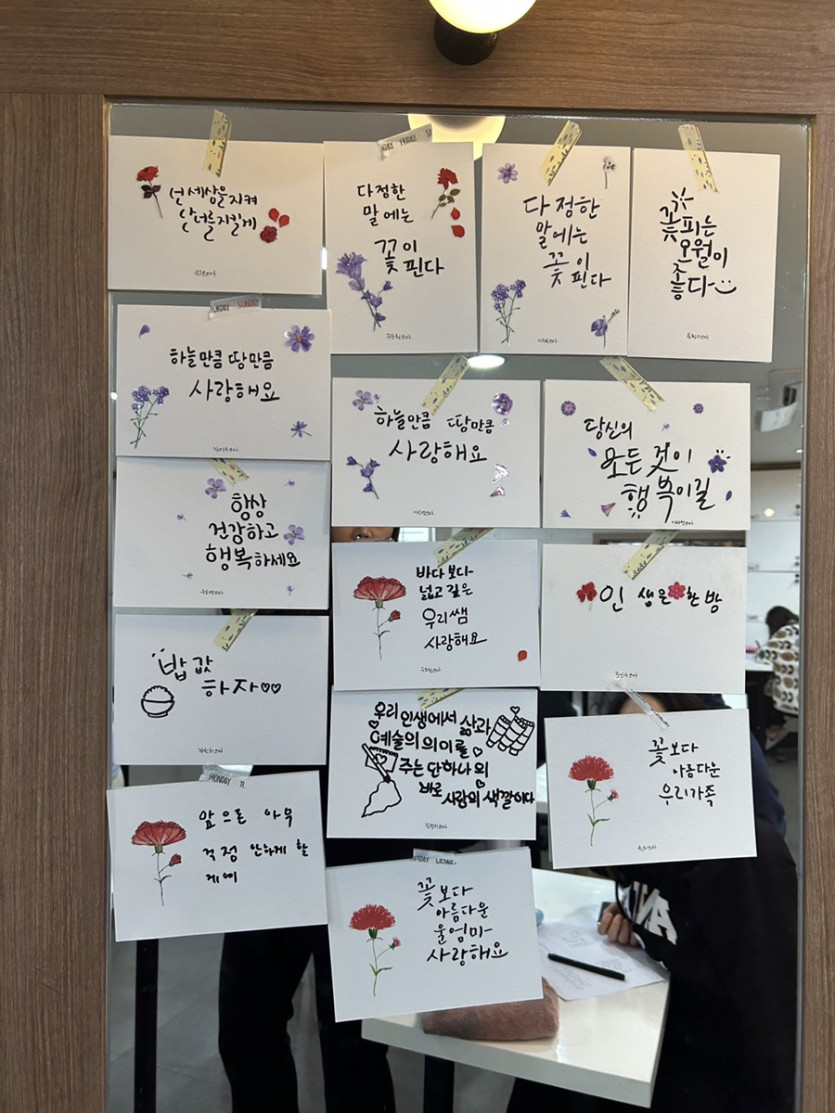 넌 세상을 지켜
난 너를 지킬게
다정한
말에는
꽃이
핀다
다정한
말에는
꽃이
핀다
꽃피는
오월이
좋다
하늘만큼 땅만큼
사랑해요
하늘만큼 땅만큼
사랑해요
당신의
모든 것이
행복이길
항상
건강하고
행복하세요
바다보다
넓고 깊은
우리쌤
사랑해요
인생은 한방
밥값
하자
우리 인생에서 삶과
예술의 의미를
주는 단 하나의
바로
사랑의 색깔이다
꽃보다
아름다운
우리가족
앞으론 아무
걱정 안하게 할
게
꽃보다
아름다운
울엄마
사랑해요
MONDAY